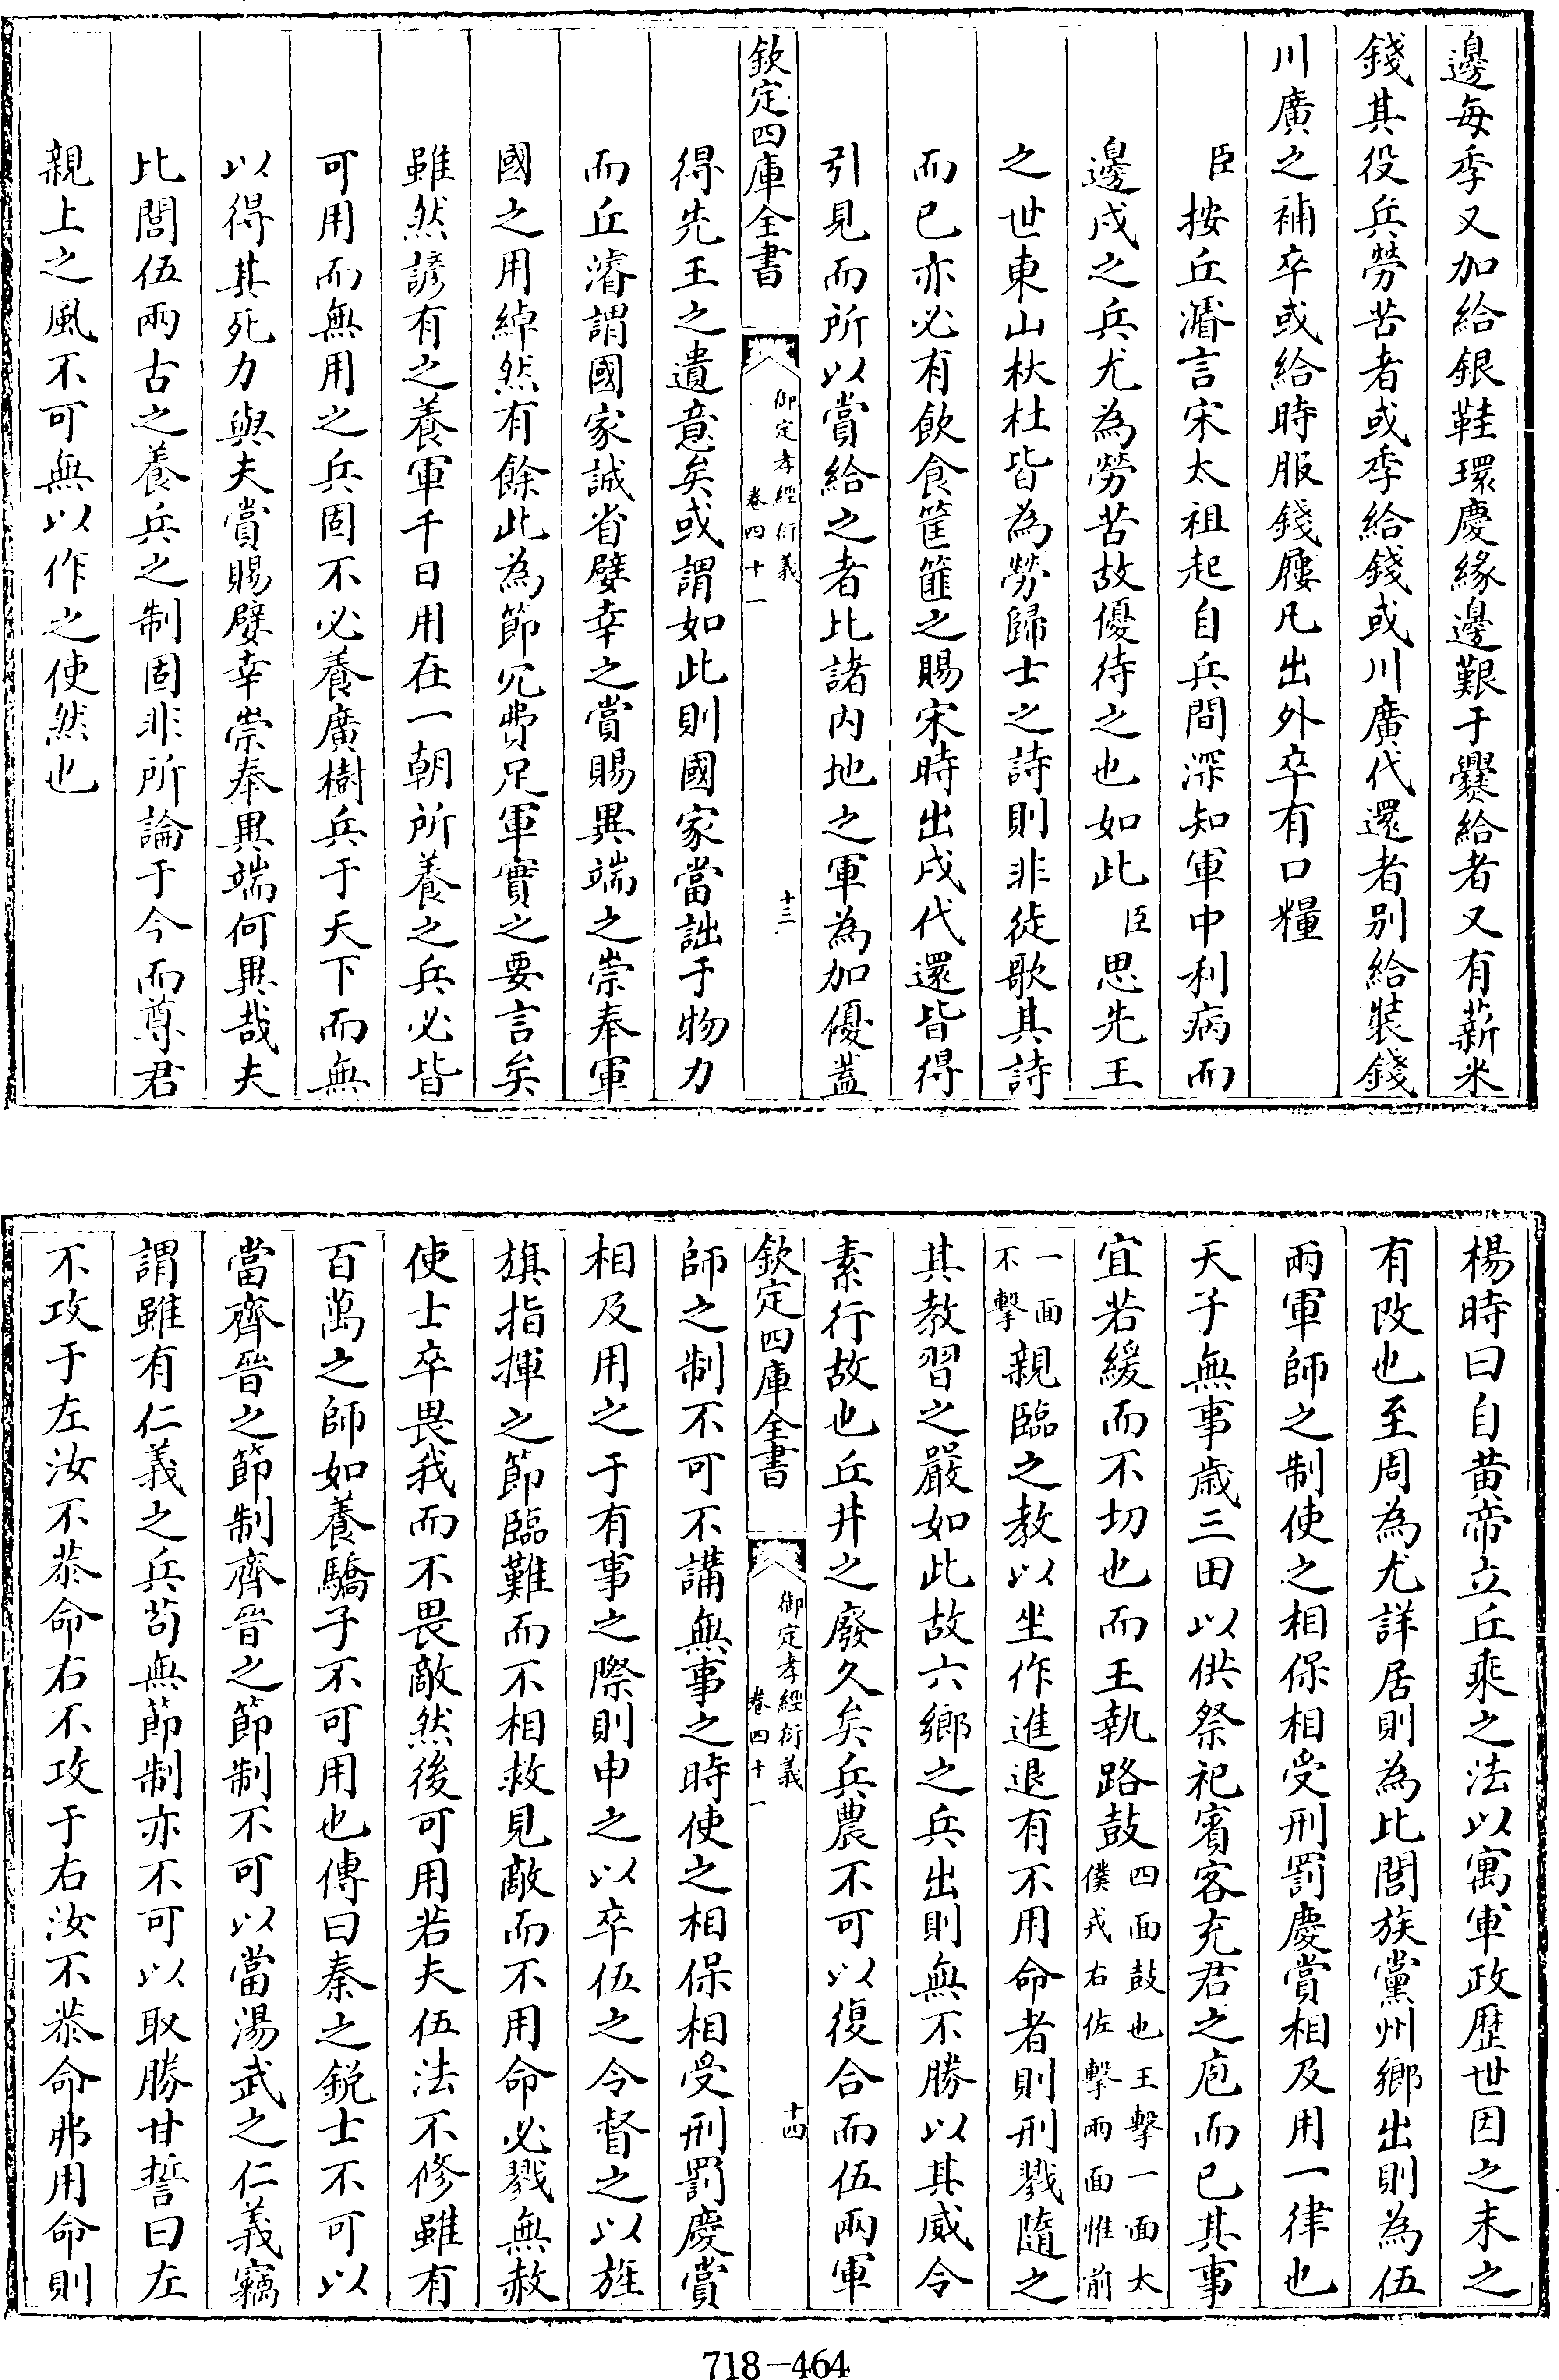 邊每季又加給銀鞋環慶緣邊艱于㸑給者又有薪米
錢其役兵勞苦者或季給錢或川廣代還者别給裝錢
川廣之補卒或給時服錢屨凡出外卒有口糧
臣按丘濬言宋太祖起自兵間深知軍中利病而
邊戍之兵尤為勞苦故優待之也如此臣思先王
之世東山杕杜皆為勞歸士之詩則非徒歌其詩
而已亦必有飲食筐篚之賜宋時出戍代還皆得
引見而所以賞給之者比諸内地之軍為加優蓋
欽定四庫全書
御定孝經衍義
卷四十一
十三
得先王之遺意矣或謂如此則國家當詘于物力
而丘濬謂國家誠省嬖幸之賞賜異端之崇奉軍
國之用綽然有餘此為節冗費足軍實之要言矣
雖然諺有之養軍千日用在一朝所養之兵必皆
可用而無用之兵固不必養廣樹兵于天下而無
以得其死力與夫賞賜嬖幸崇奉異端何異哉夫
比閭伍兩古之養兵之制固非所論于今而尊君
親上之風不可無以作之使然也
楊時曰自黄帝立丘乘之法以寓軍政歴世因之未之
有改也至周為尤詳居則為比閭族黨州鄉出則為伍
兩軍師之制使之相保相受刑罰慶賞相及用一律也
天子無事歲三田以供祭祀賓客充君之庖而已其事
宜若緩而不切也而王執路鼓四面鼓也王擊一面太僕戎右佐擊兩面惟前
一面不擊親臨之教以坐作進退有不用命者則刑戮隨之
其教習之嚴如此故六鄉之兵出則無不勝以其威令
素行故也丘井之廢久矣兵農不可以復合而伍兩軍
欽定四庫全書
御定孝經衍義
卷四十一
十四
師之制不可不講無事之時使之相保相受刑罰慶賞
相及用之于有事之際則申之以卒伍之令督之以旌
旗指揮之節臨難而不相救見敵而不用命必戮無赦
使士卒畏我而不畏敵然後可用若夫伍法不修雖有
百萬之師如養驕子不可用也傳曰秦之鋭士不可以
當齊晉之節制齊晉之節制不可以當湯武之仁義竊
謂雖有仁義之兵苟無節制亦不可以取勝甘誓曰左
不攻于左汝不恭命右不攻于右汝不恭命弗用命則
718-464